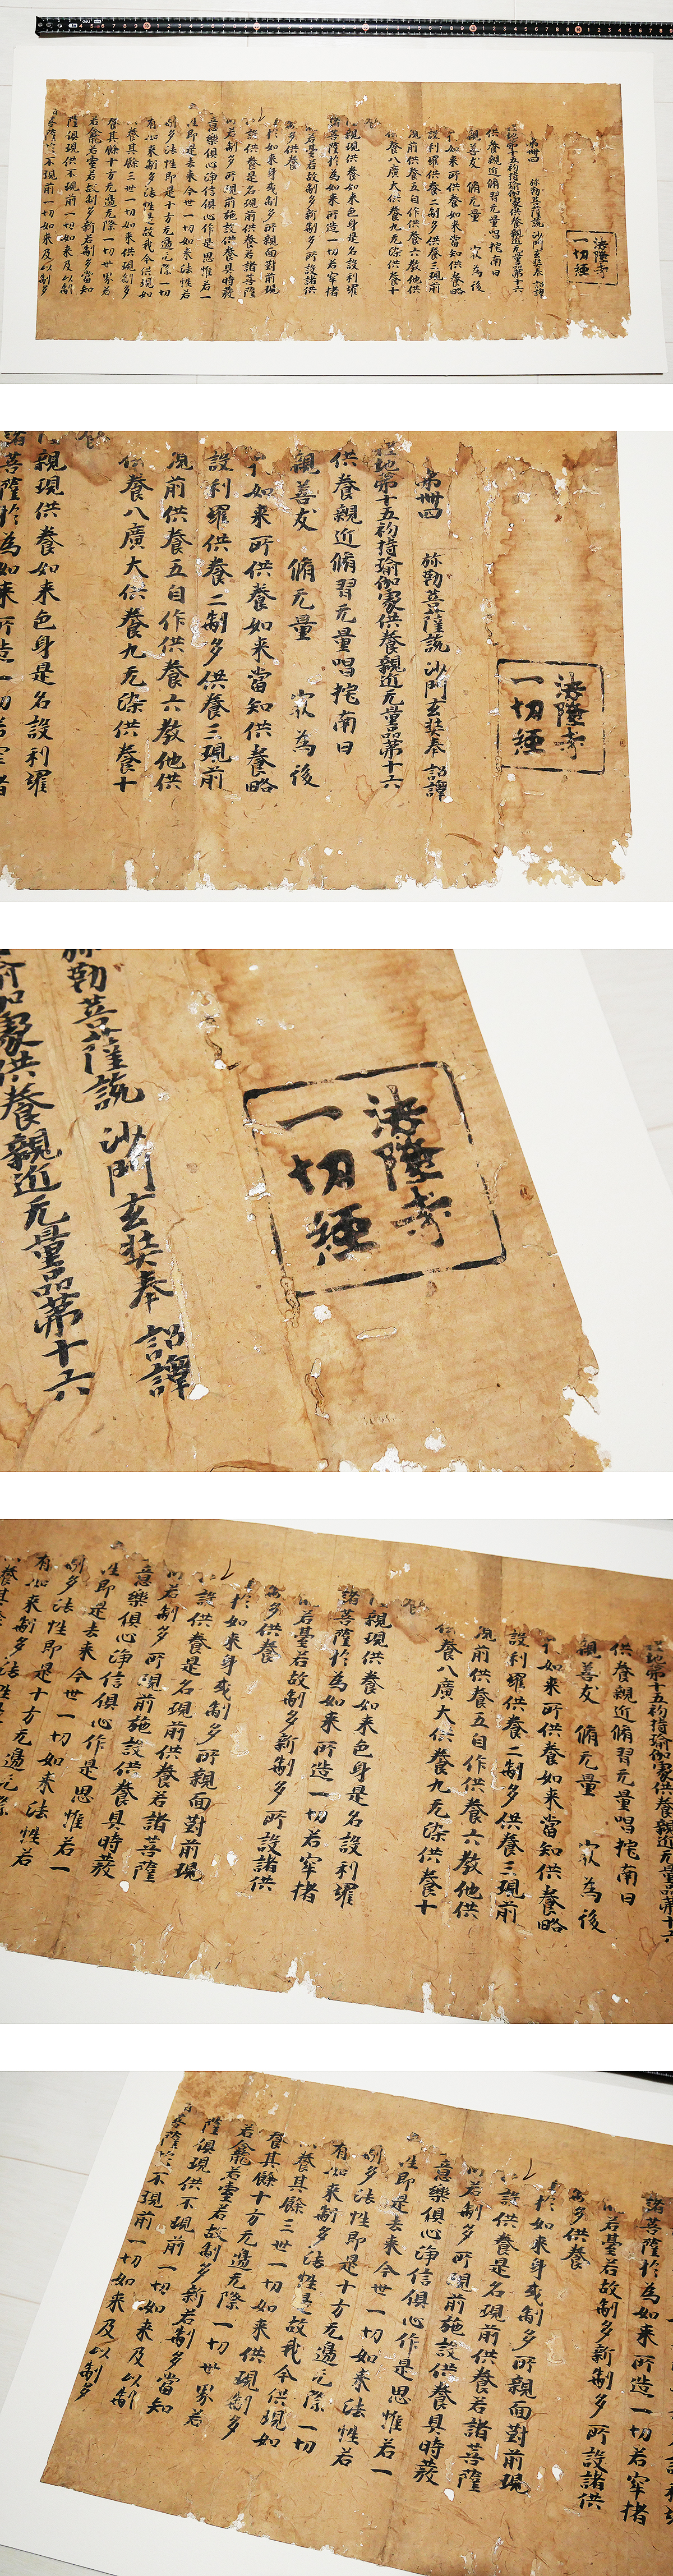 法隆寺
一切経
第卌四 弥勒菩薩說 沙門玄奘奉 詔譯
地第十五初持瑜伽處供養親近无量品第十六
供養親近脩習无量嗢柁南曰
親善友 脩无量 冣為後
如来所供養如来當知供養略
設利羅供養二制多供養三現前
現前供養五自作供養六教他供
供養八廣大供養九无染供養十
親現供養如来色身是名設利羅
諸菩薩於為如来所造一切若窣堵
若臺若故制多新制多所設諸供
多供養
於如来身或制多所親面對前現
設供養是名現前供養若諸菩薩
若制多所現前施設供養具時發
意樂俱心淨信俱心作是思惟若一
性即是去来今世一切如来法性若
制多法性即是十方无邊无際一切
有如来制多法性是故我今供現如
養其餘三世一切如来供現制多
養其餘十方无邊无際一切世界若
若龕若臺若故制多新若制多當知
薩俱現供不現前一切如来及以制
菩薩於不現前一切如来及以制多